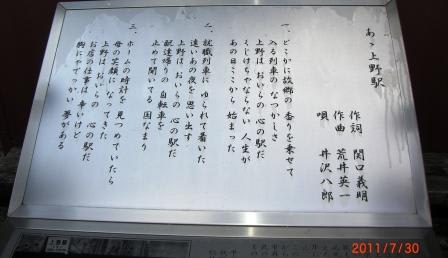 あゝ上野駅
作詞 関口義明
作曲 荒井英一
唄 井沢八郎
一、どこかに故郷の 香りを乗せて
入る列車の なつかしさ
上野は おいらの 心の駅だ
くじけちゃならない 人生が
あの日ここから 始まった
二、就職列車に ゆられて着いた
遠いあの夜を 思い出す
上野は おいらの 心の駅だ
配達帰りの 自転車を
止めて聞いてる 国なまり
三、ホームの時計を 見つめていたら
母の笑顔に なってきた
上野は おいらの 心の駅だ
お店の仕事は 辛いけど
胸にゃでっかい 夢がある
上野駅
2011/7/30